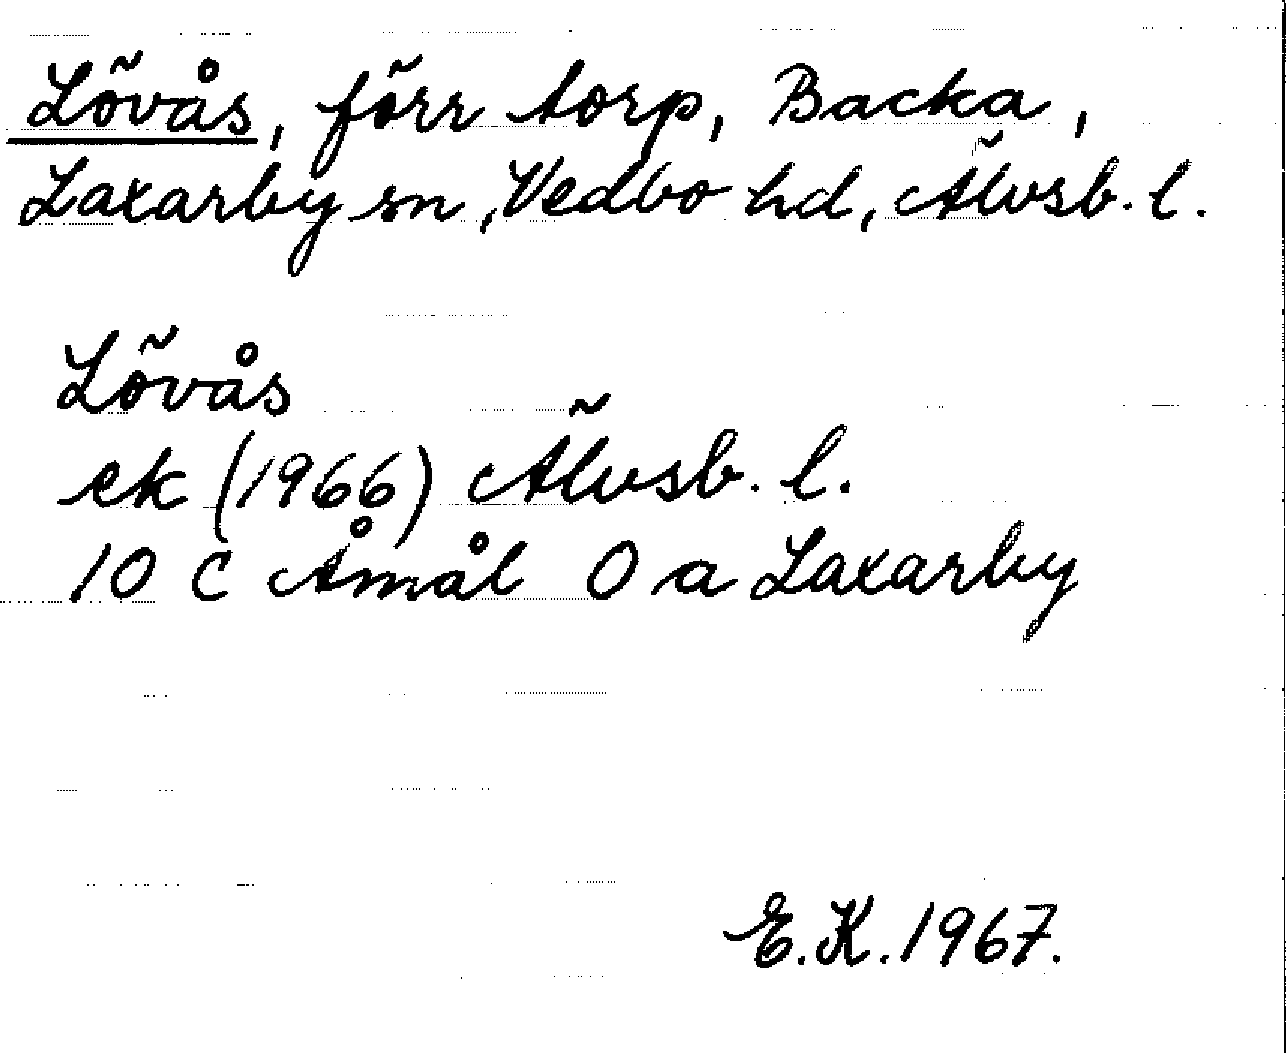 Lövås, förr torp, Backa,
Laxarby sn, Vedbo hd, Älvsb. l.
Lövås
ek (1966) Älvsb. l.
10 C Åmål 0 a Laxarby
E.K. 1967.